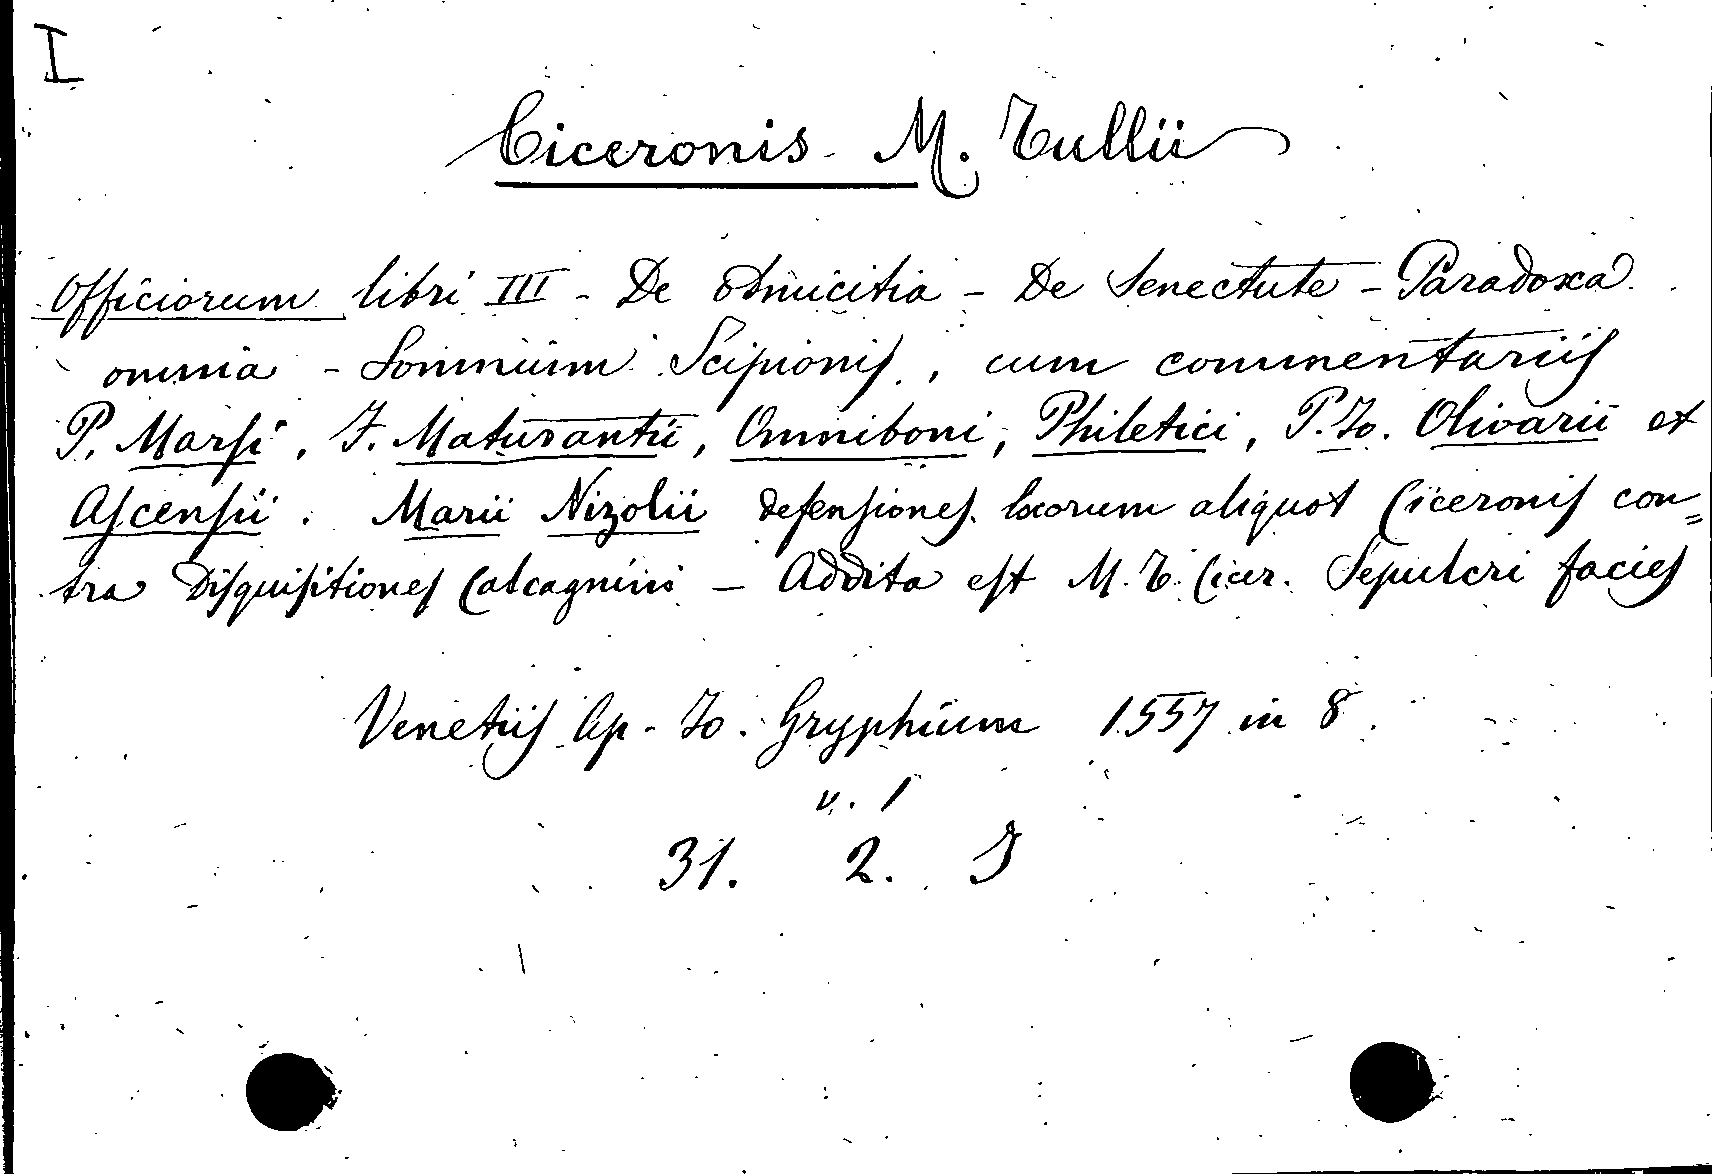 I
Ciceronis M. Tullii
Officiorum libri III - De Amicitia - De Senectute - Paradoxa
omnia - Somnium Scipionis, cum commentariis
P. Marsi, F. Maturantii, Omniboni, Philetici, P. Io. Olivarii et
Ascensii. Marii Nizolii defensiones locorum aliquot Ciceronis con=
tra Disquisitiones Calcagnini - Addita est M. T. Cicer. Sepulcri facies
Venetiis Ap. Io. Gryphium 1557 in 8
v. 1
31. 2. J